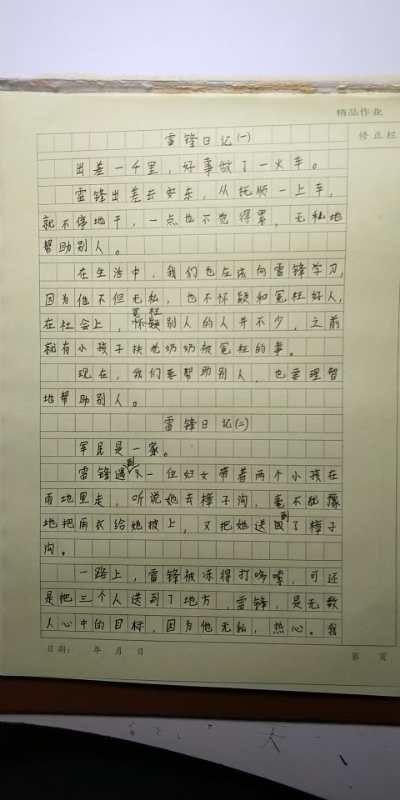 精品作业
修正栏
雷锋日记(一)
出差一千里，好事做了一火车。
雷锋出差去安东，从抚顺一上车，
就不停地干，一点也不觉得累，无私地
帮助别人。
在生活中，我们也应该向雷锋学习，
因为他不但无私，也不怀疑和冤枉好人，
在社会上，冤枉别人的人并不少，之前
就有小孩子扶老奶奶被冤枉的事。
现在，我们要帮助别人，也要理智
地帮助别人。
雷锋日记(二)
军民是一家。
雷锋遇到一位妇女带着两个小孩在
雨地里走，听说她去樟子沟，毫不犹豫
地把雨衣给她披上，又把她送到了樟子
沟。
一路上，雷锋被冻得打哆嗦，可还
是把三个人送到了地方，雷锋，是无数
人心中的目标，因为他无私，热心。我
日期： 年 月 日
第 页